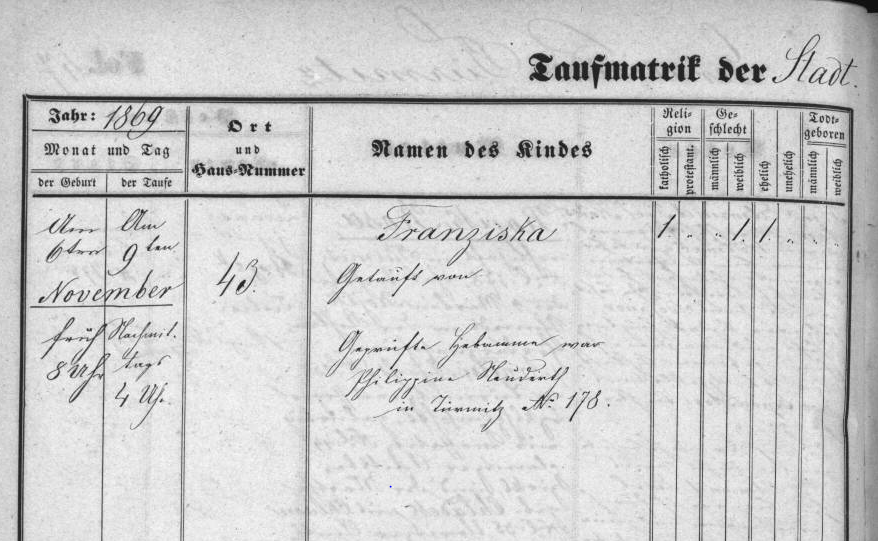 Taufmatrik der Stadt
Jahr: 1869
Monat und Tag
der Geburt der Taufe
Ort
und
Haus-Nummer
Namen des Kindes
Reli-
gion
katholisch
protestant.
Ge-
schlecht
männlich
weiblich
ehelich
unehelich
Todt-
geboren
männlich
weiblich
Am Am
6ten 9ten
November
früh Nachmit.
8 Uhr tags
4 Uh.
43.
Franziska
1. „ „ 1. 1. „ „ „
Getauft von
Geprüfte Hebamme war
Philippine Neuderth
in Türmitz No. 178.